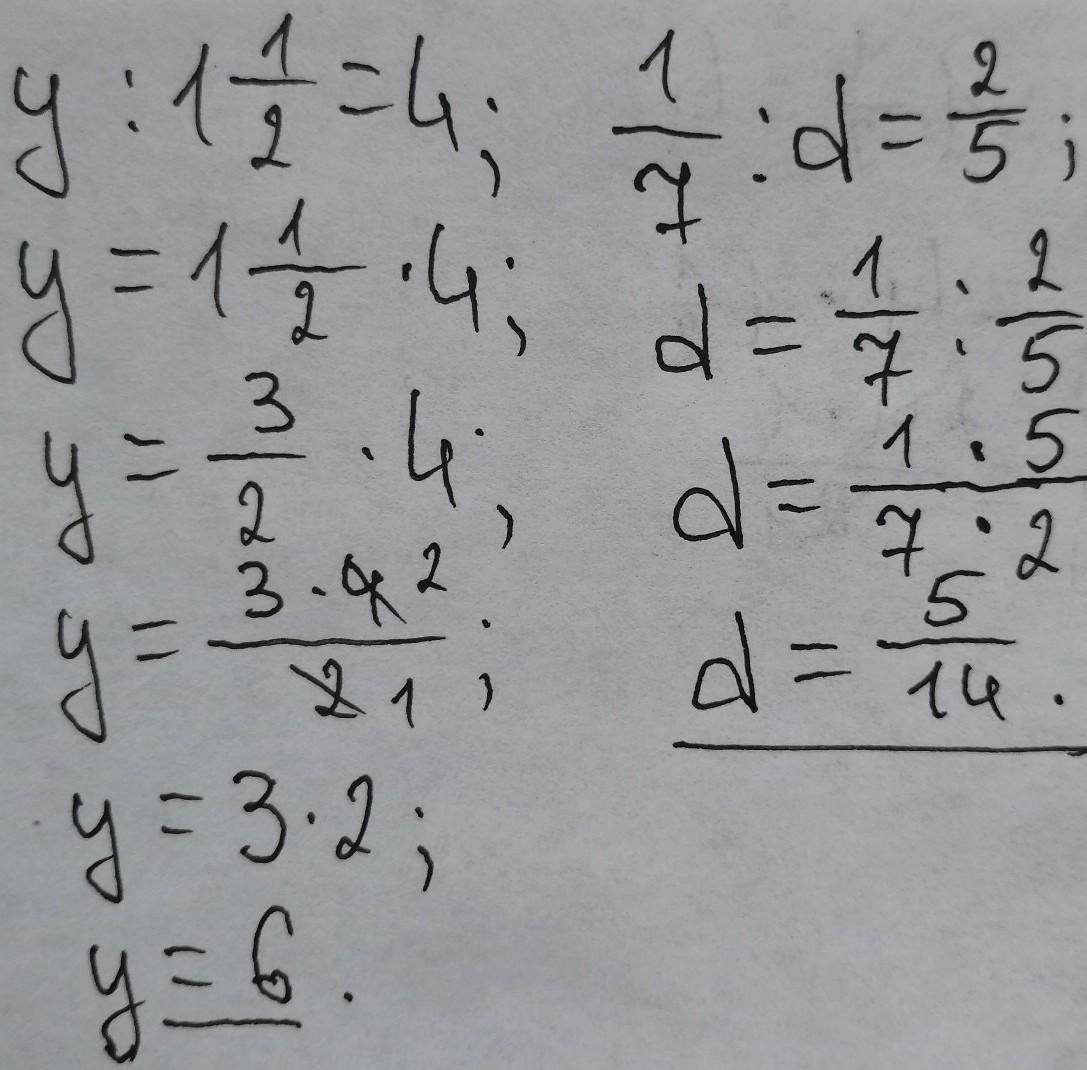 y : 1 1/2 = 4;
y = 1 1/2 · 4;
y = 3/2 · 4;
y = 3 · 4 2 / 2 1;
y = 3 · 2;
y = 6.
1/7 : d = 2/5;
d = 1/7 : 2/5
d = 1 · 5 / 7 · 2
d = 5/14.